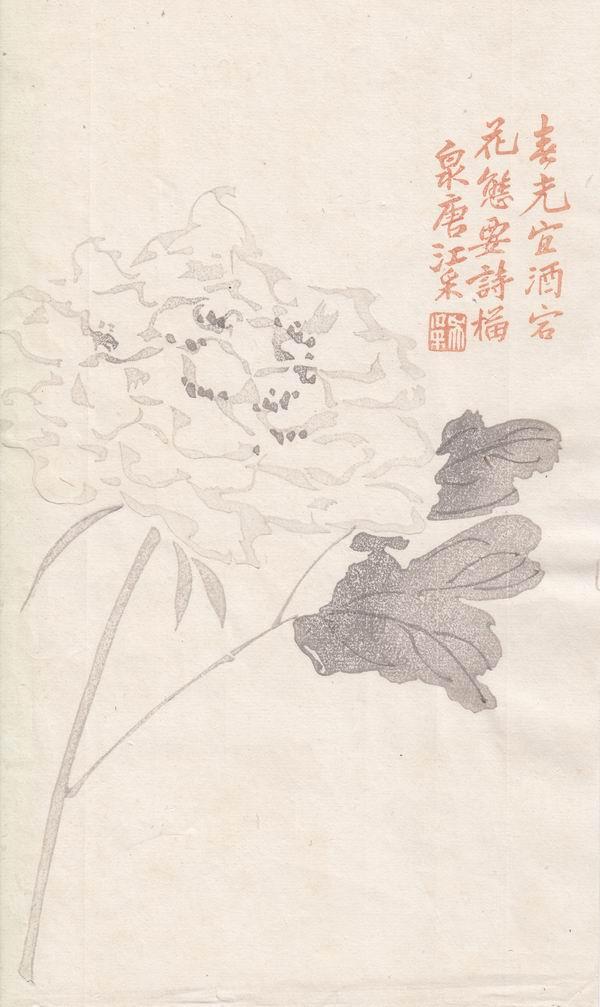 春光宜酒客
花態要詩描
泉唐江采